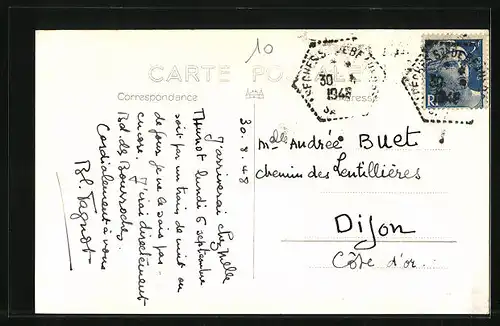 10
CARTE POSTALE
Correspondance
Adresse
30
8
1948
30
1948
30.8.48
J'arriverai chez Melle
Thurot lundi 6 septembre
soit par un train de nuit ou
de jour, je ne le sais pas
encore. J'irai directement
Bd. de Bourroches.
Cordialement à vous
Melle Andrée Buet
chemin des Lentillières
Dijon
Côte d'or.